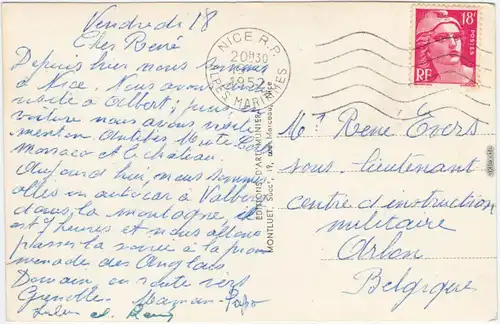 Vendredi 18
Cher René
Depuis hier nous sommes
à Nice. Nous avons
visité à Albert; puis en
voiture nous avons visité
Menton Antibes Monte Carlo
Monaco et le château.
Aujourd'hui, nous sommes
allés en autocar à Valberg
dans la montagne, il
est 9 heures et nous allons
passer la soirée à la prome
menade des Anglais
Demain, en route vers
Grenoble Maman Papa
NICE R.P.
20H30
1952
ALPES-MARITIMES
18F
POSTES
RF
EDITIONS D'ART MUNIER
MONTLUET Succr, 19, rue Marceau, Nice
Mr René
sous-lieutenant
centre d'instruction
militaire
Arlon
Belgique